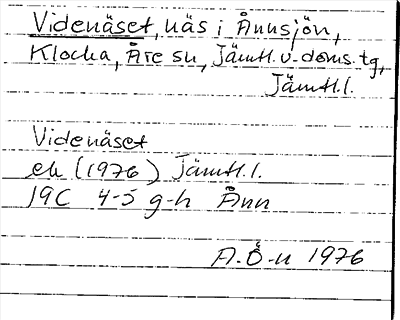 Videnäset, näs i Ånnsjön,
Klocka, Åre sn, Jämtl. v. doms. tg,
Jämtl. l.
Videnäset
ek (1976) Jämtl. l.
19C 4-5 g-h Ånn
A.Ö-n 1976